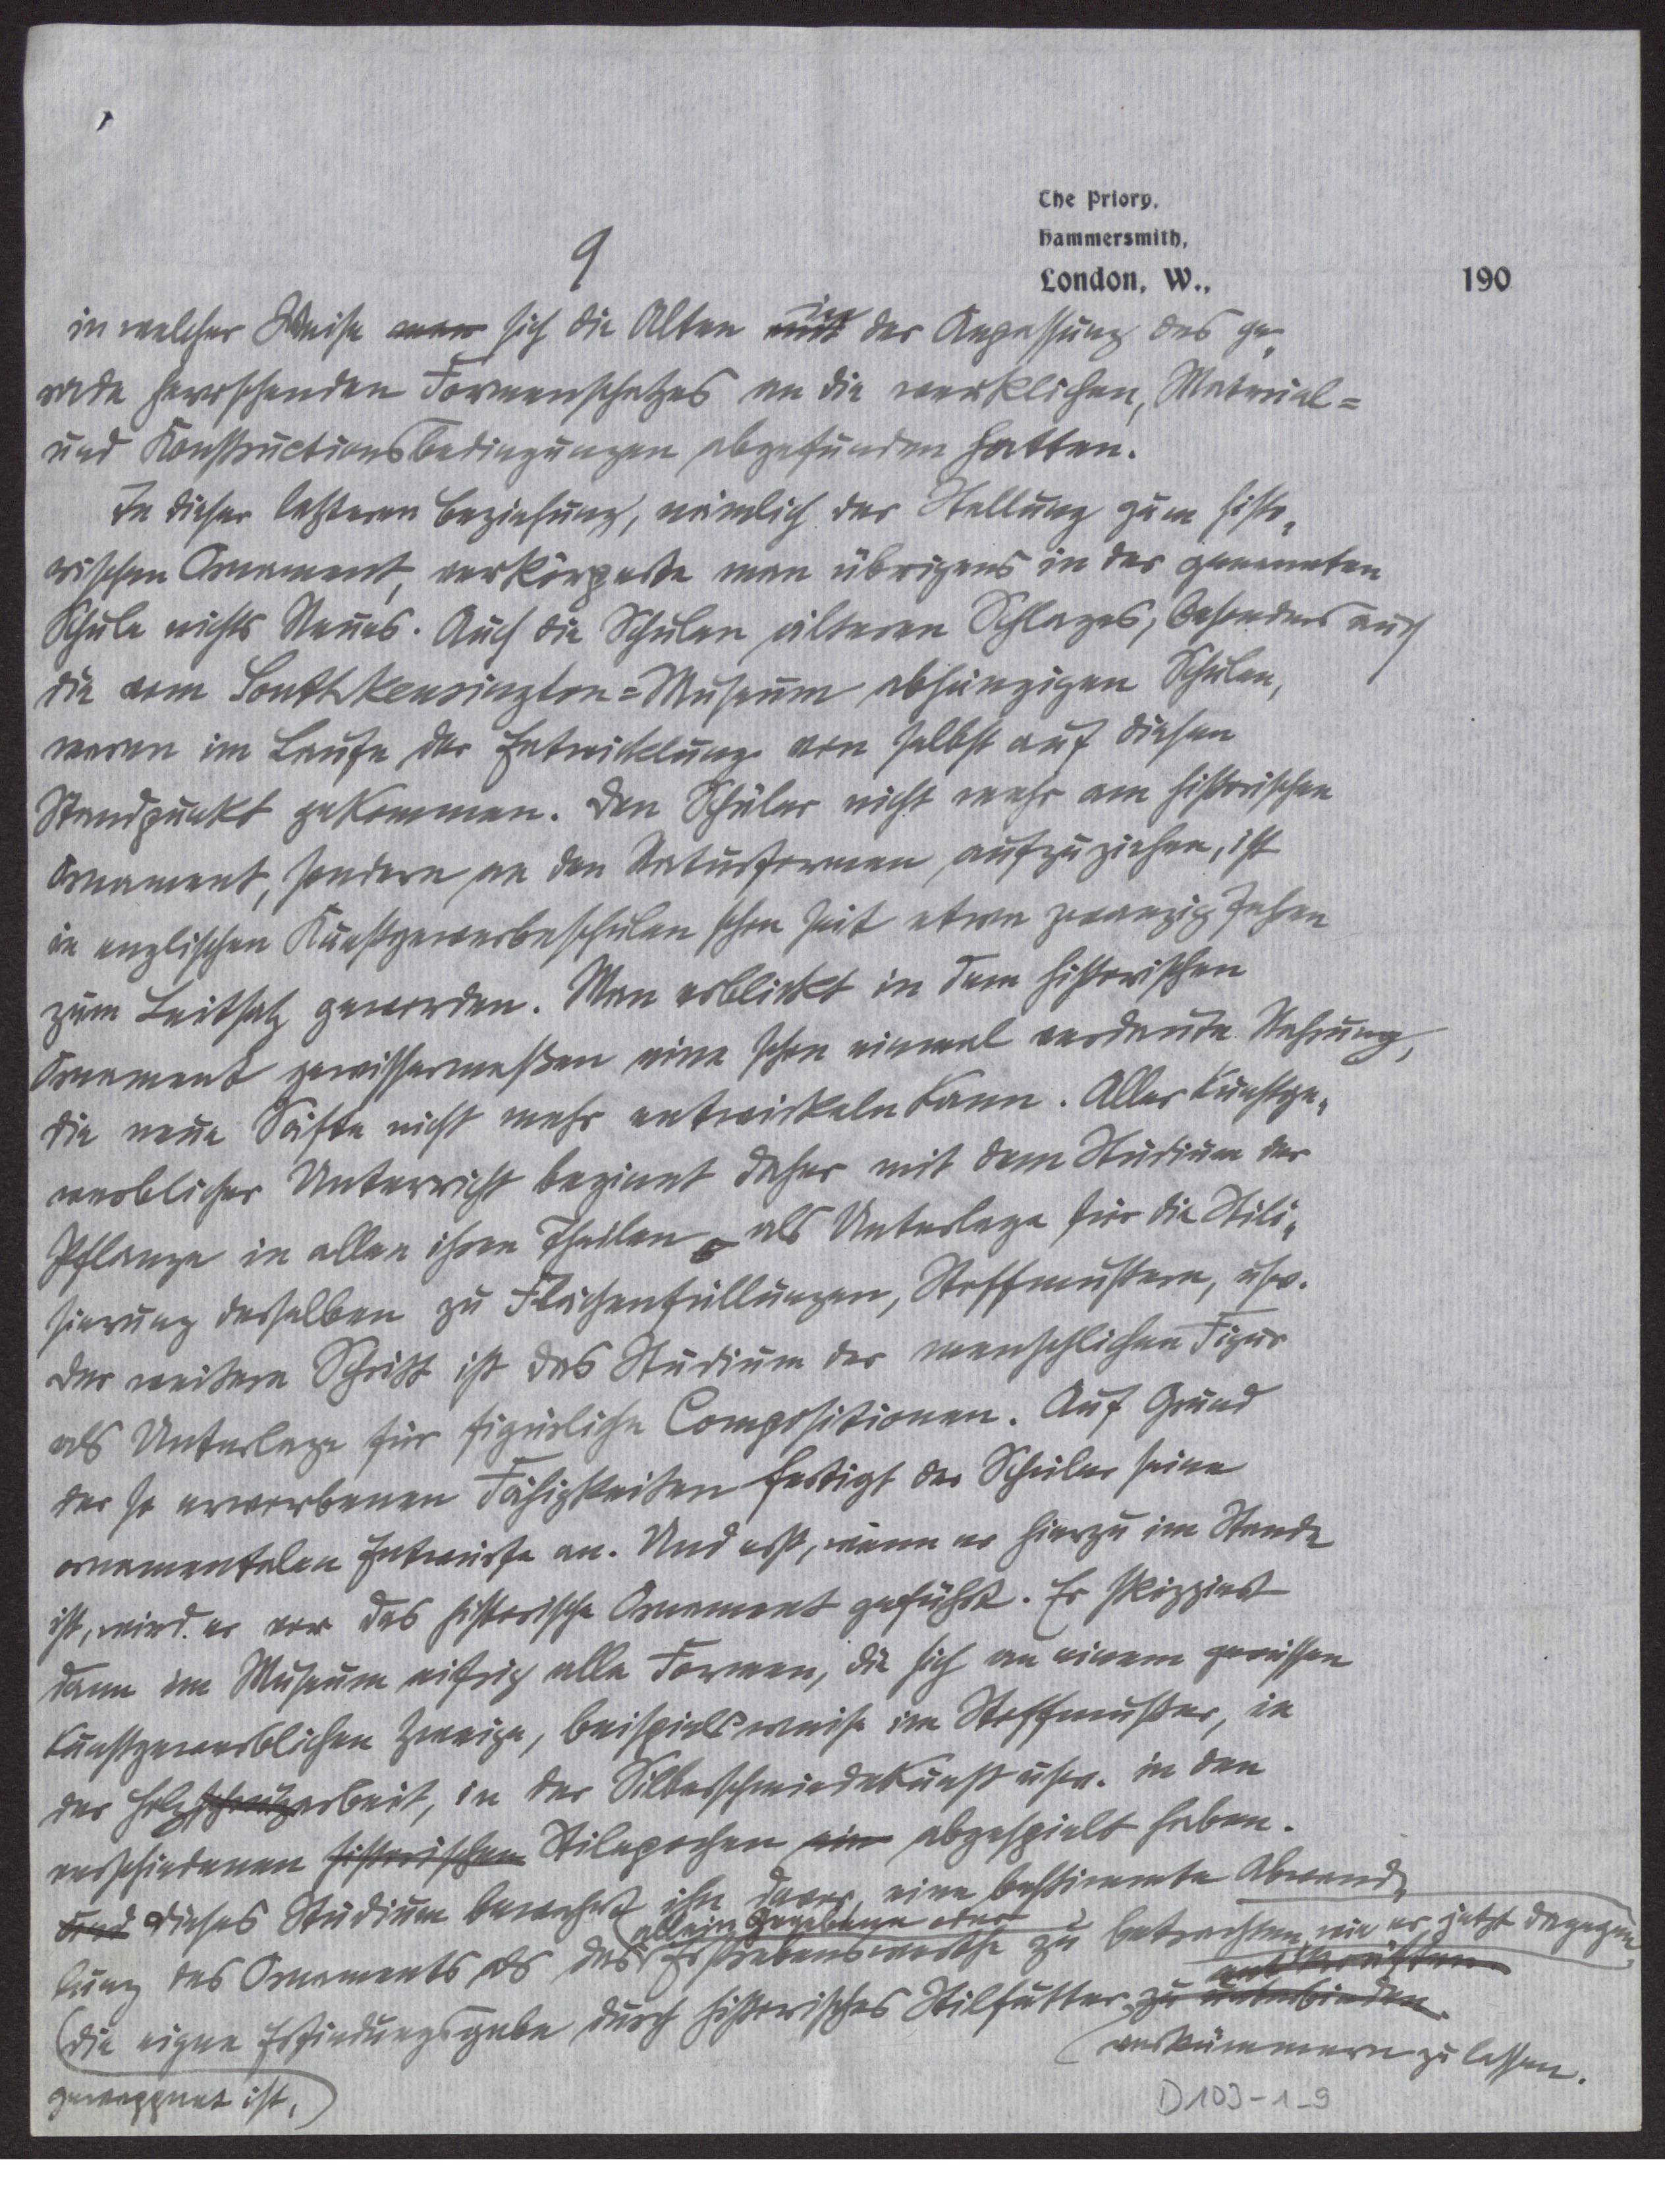 The Priory,
Hammersmith,
London, W.,
190
9
in welcher Weise man sich die Alten mit in der Anpassung des ge-
rade herrschenden Formenschatzes an die werklichen, Material=
und Konstructionsbedingungen abgefunden hatten.
In dieser letzteren Beziehung, nämlich der Stellung zum histo-
rischen Ornament, verkörperte man übrigens in der genannten
Schule nichts Neues. Auch die Schulen älteren Schlages, besonders auch
die vom South Kensington=Museum abhängigen Schulen,
waren im Laufe der Entwicklung von selbst auf diesen
Standpunkt gekommen. Den Schüler nicht mehr am historischen
Ornament, sondern an den Naturformen aufzuziehen, ist
in englischen Kunstgewerbeschulen schon seit etwa zwanzig Jahren
zum Leitsatz geworden. Man erblickt in dem historischen
Ornament gewissermaßen eine schon einmal verdaute Nahrung,
die neue Säfte nicht mehr entwickeln kann. Aller kunstge-
werblicher Unterricht beginnt daher mit dem Studium der
Pflanze in allen ihren Theilen, als Unterlage für die Stili-
sierung derselben zu Flächenfüllungen, Stoffmustern, usw.
Der weitere Schritt ist das Studium der menschlichen Figur
als Unterlage für figürliche Compositionen. Auf Grund
der so erworbenen Fähigkeiten fertigt der Schüler seine
ornamentalen Entwürfe an. Und erst, wenn er hierzu im Stande
ist, wird er vor das historische Ornament geführt. Er skizziert
dann im Museum eifrig alle Formen, die sich an einem gewissen
kunstgewerblichen Zweige, beispielsweise im Stoffmuster, in
der Holzschnitzarbeit, in der Silberschmiedekunst usw. in den
verschiedenen historischen Stilepochen abgespielt haben.
Und dieses Studium bewahrt ihn davor, eine bestimmte Abwand-
lung des Ornaments als das allein Gegebene oder Erstrebenswerthe zu betrachten, wie er jetzt dagegen
die eigne Erfindungsgabe durch historisches Stilfutter zu unterbinden
verkümmern zu lassen.
gewappnet ist,
D 103-1-9